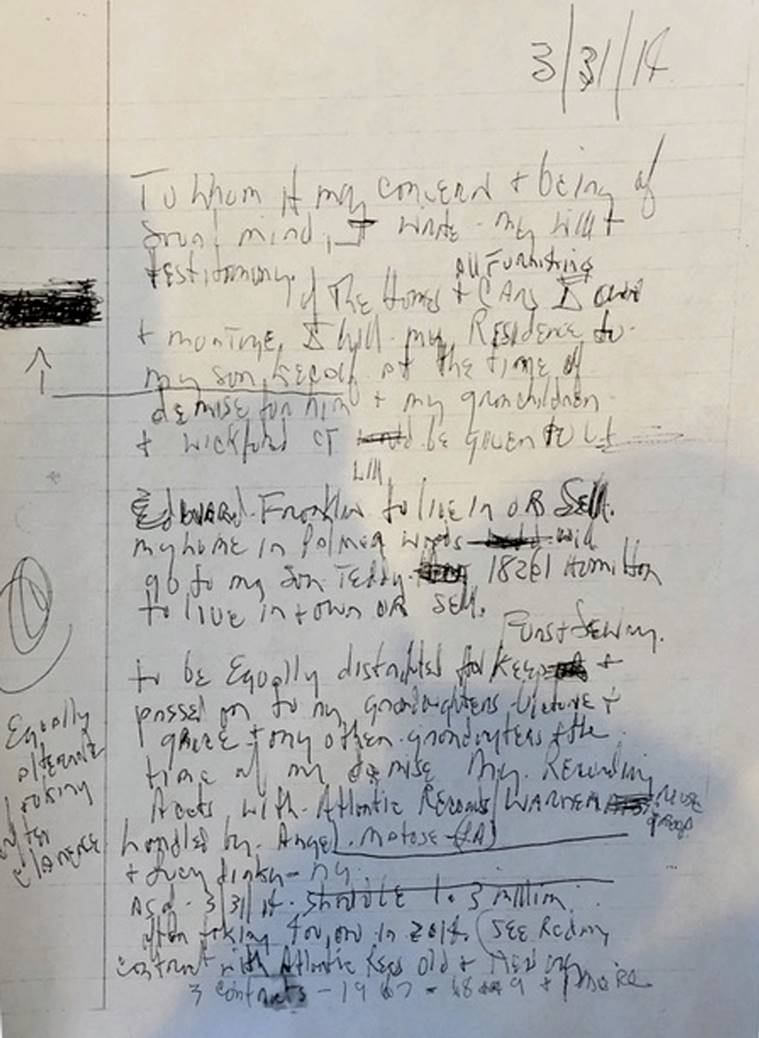 3/31/14
To Whom it may concern + being of
sound mind, I write my will +
testimony.
All Furnishing
of The Homes + CARS I own
+ mortgage I will my Residence to
my son Kecalf at the time of
demise for him + my granchildren
+ Wickford CT be given to
will
Edward Franklin to live in OR Sell.
my home in Palmer Woods will
go to my son Teddy. 18261 Hamilton
to live in town OR sell.
Furs + Jewlry.
to be Equally distributed +
passed on to my grandaughters Victorie +
grace + any other grandaughters at the
time of my demise My. Recording
Acets with Atlantic Records/WARNER Muse
group
handled by. Angel. Matose (LA)
+ - ny
As of 3/31/14. should be 1.3 million
after taking four one in 2014. (SEE
contract with Atlantic Recs Old + New
3 contracts - 1967 - 68 + more
Equally
alternate
looking
after
clarence